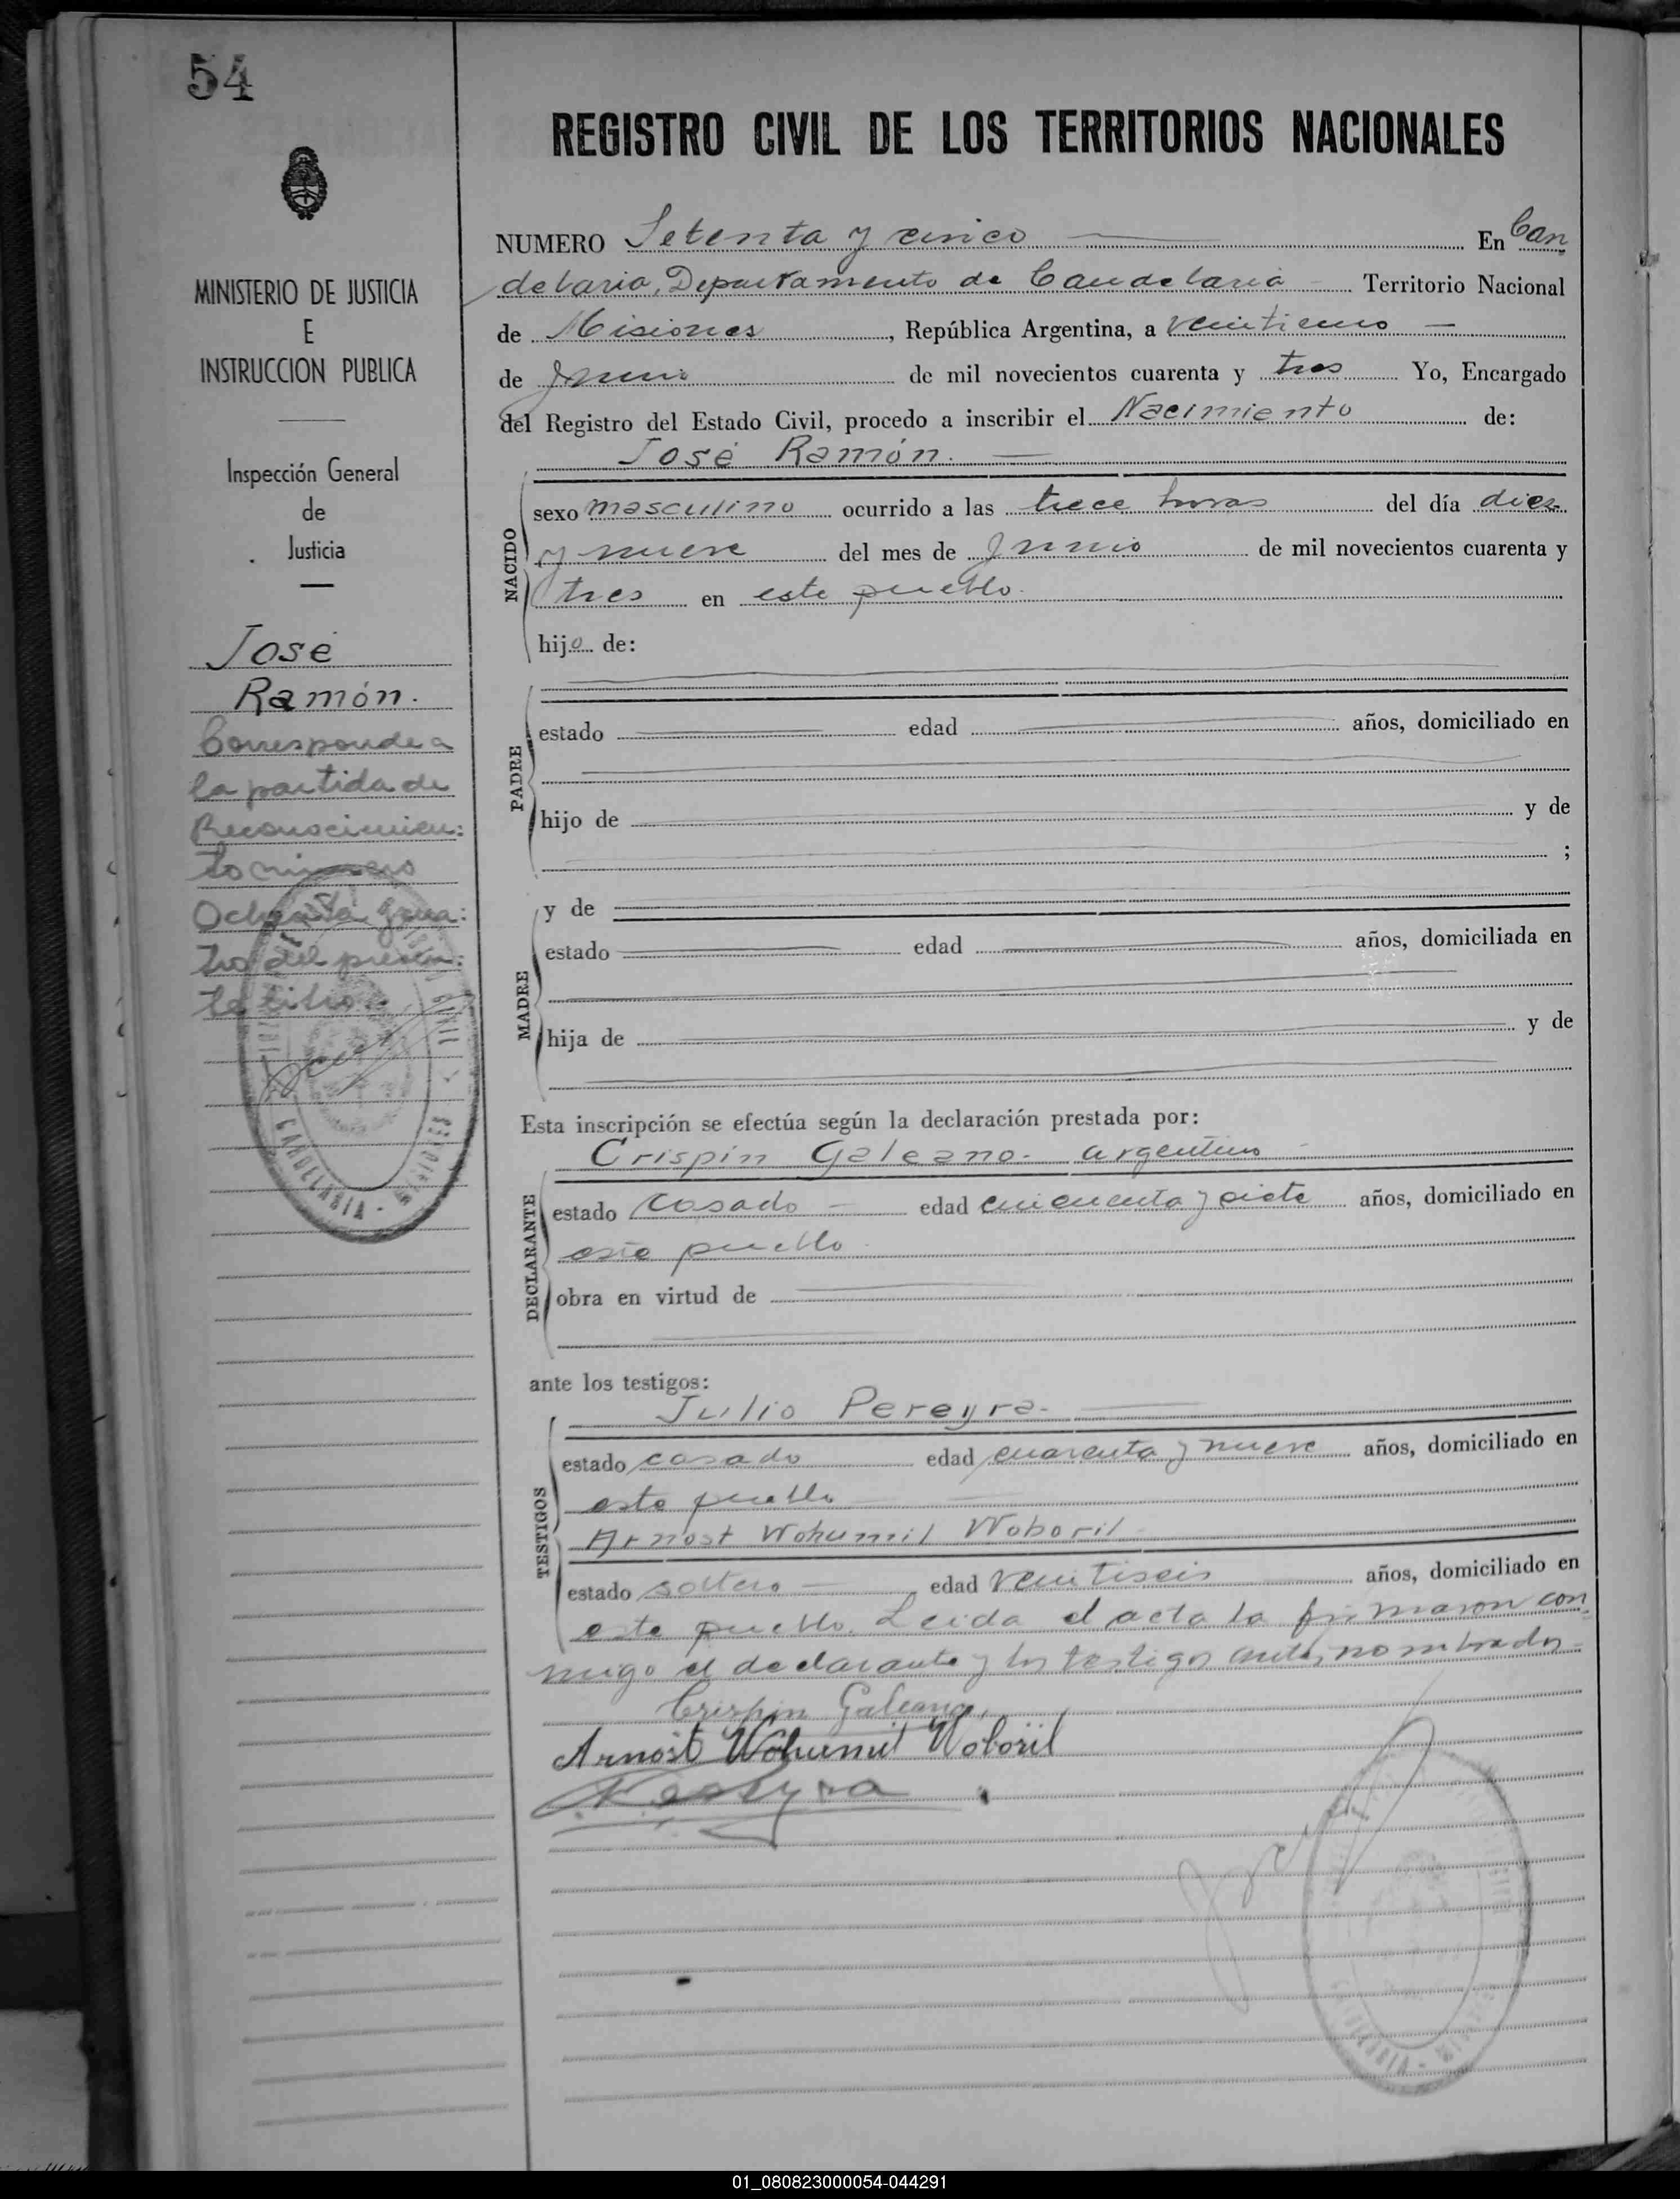 54
REGISTRO CIVIL DE LOS TERRITORIOS NACIONALES
MINISTERIO DE JUSTICIA
E
INSTRUCCION PUBLICA
Inspección General
de
Justicia
José
Ramón.
Corresponde a
la partida de
Reconocimien:
to número
Ochenta y cua:
tro del presen:
te libro.
CANDELARIA
NUMERO Setenta y cinco En Can
delaria, Departamento de Candelaria Territorio Nacional
de Misiones, República Argentina, a veintiuno
de Junio de mil novecientos cuarenta y tres Yo, Encargado
del Registro del Estado Civil, procedo a inscribir el Nacimiento de:
José Ramón.
NACIDO
sexo masculino ocurrido a las trece horas del día diez
y nueve del mes de Junio de mil novecientos cuarenta y
tres en este pueblo.
hijo de:
PADRE
estado edad años, domiciliado en
hijo de y de
;
MADRE
y de
estado edad años, domiciliada en
hija de y de
Esta inscripción se efectúa según la declaración prestada por:
Crispin Galeano. argentino
DECLARANTE
estado casado edad cincuenta y siete años, domiciliado en
este pueblo
obra en virtud de
ante los testigos:
Julio Pereyra.
TESTIGOS
estado casado edad cuarenta y nueve años, domiciliado en
este pueblo
Arnost Wohumil Woboril
estado soltero edad veintiseis años, domiciliado en
este pueblo. Leida el acta la firmaron con
migo el declarante y los testigos antes nombrados
Crispin Galeano
Arnost Wohumil Woboril
Pereyra
CANDELARIA - MISIONES
01_080823000054-044291